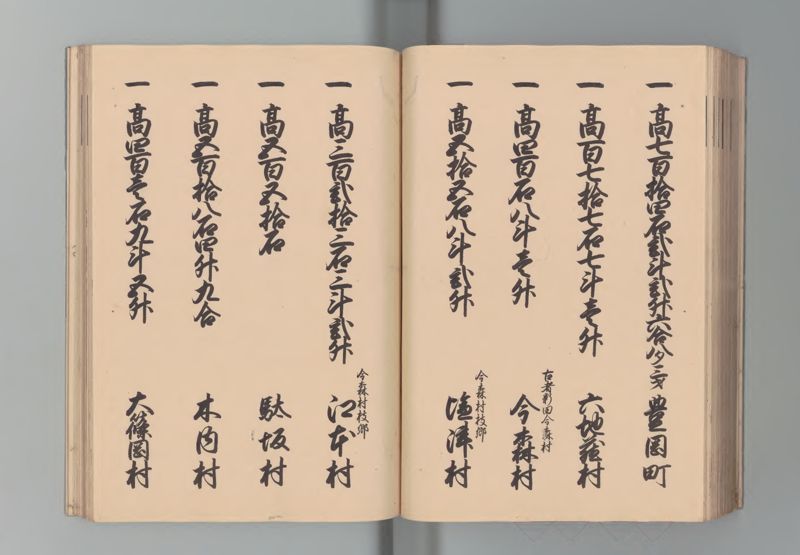 一 高七百拾四石弐斗弐升六合夕三才 豊岡町
一 高百七拾七石七斗壱升 六地蔵村
古者新田今森村
一 高四百石八斗壱升 今森村
今森村枝郷
一 高五拾五石八斗弐升 塩津村
今森村枝郷
一 高三百弐拾三石三斗弐升 江本村
一 高五百五拾石 駄坂村
一 高五百拾八石四升九合 木内村
一 高四百壱石九斗五升 大篠岡村